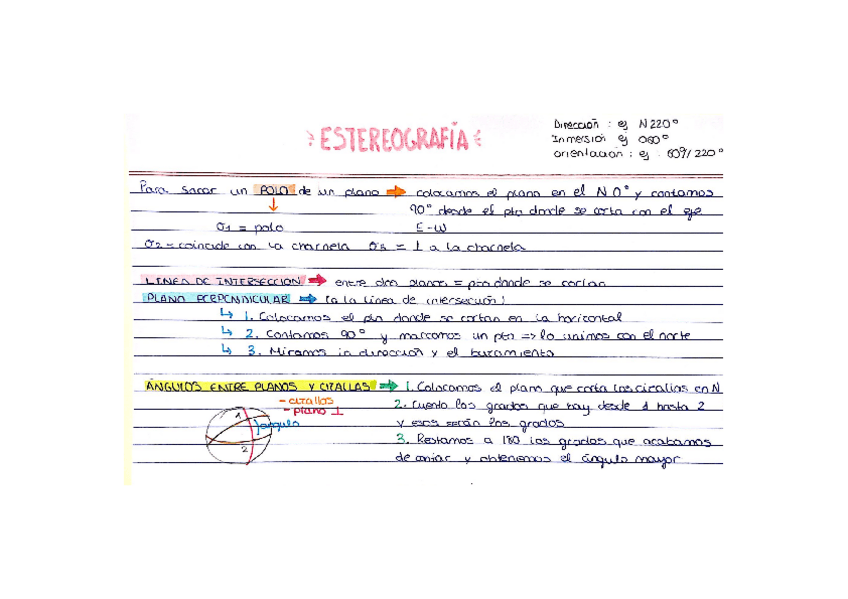 ESTEREOGRAFÍA
Dirección : ej N220°
Inmersión ej 060°
orientación : ej 60º/220°
Para sacar un POLO de un plano → colocamos el plano en el N 0° y contamos
90° desde el pto donde se corta con el eje
σ1 = polo E-W
σ2 = coincide con la charnela σ3 = ⊥ a la charnela
LINEA DE INTERSECCION → entre dos planos = pto donde se cortan
PLANO PERPENDICULAR → (a la línea de intersección)
↳ 1. Colocamos el pto donde se cortan en la horizontal
↳ 2. Contamos 90° y marcamos un pto => lo unimos con el norte
↳ 3. Miramos la dirección y el buzamiento
ÁNGULOS ENTRE PLANOS Y CIZALLAS → 1. Colocamos el plano que corta las cizallas en N
- cizallas
- plano ⊥
ángulo
1
2
2. Cuento los grados que hay desde 1 hasta 2
y esos serán los grados
3. Restamos a 180 los grados que acabamos
de contar y obtenemos el ángulo mayor